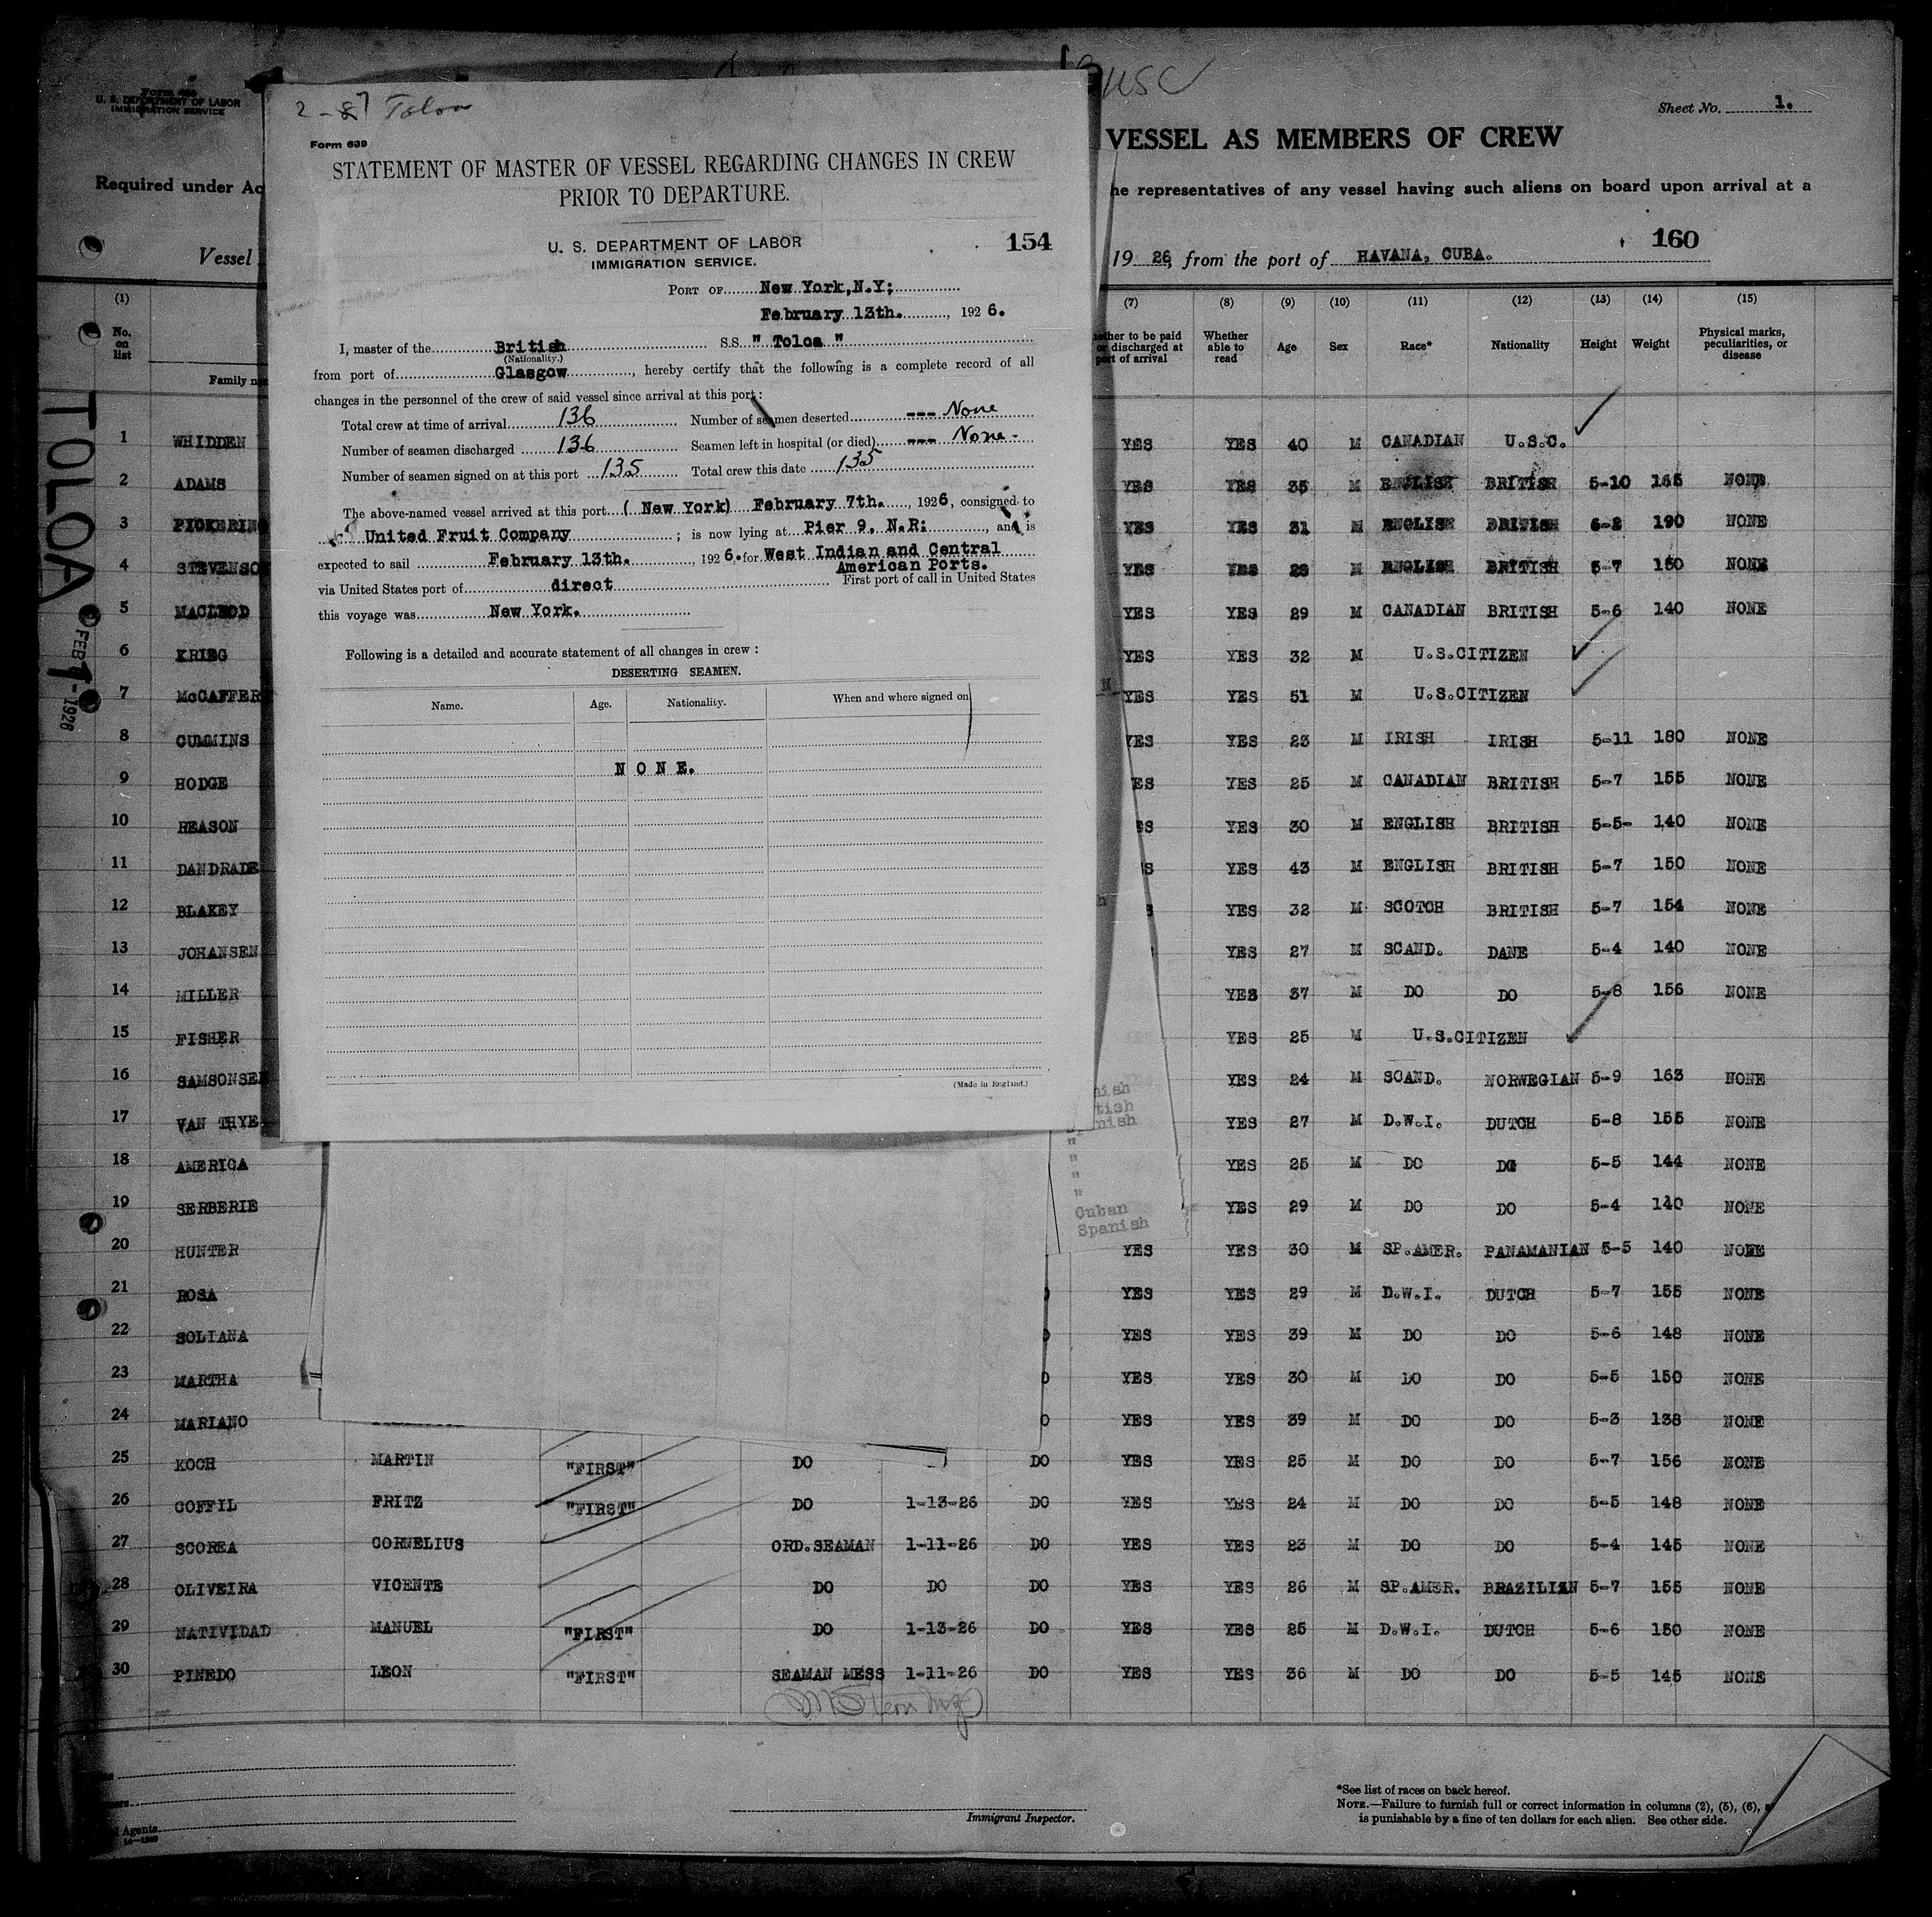 2-87 Toloa
Form 639
STATEMENT OF MASTER OF VESSEL REGARDING CHANGES IN CREW
PRIOR TO DEPARTURE.
U. S. DEPARTMENT OF LABOR
IMMIGRATION SERVICE.
154
PORT OF New York, N.Y;
February 13th. , 1926.
I, master of the British S.S. " Toloa "
(Nationality.)
from port of Glasgow , hereby certify that the following is a complete record of all
changes in the personnel of the crew of said vessel since arrival at this port:
Total crew at time of arrival 136 Number of seamen deserted --- None
Number of seamen discharged 136 Seamen left in hospital (or died) --- None.
Number of seamen signed on at this port 135 Total crew this date 135
The above-named vessel arrived at this port ( New York) February 7th. , 1926, consigned to
United Fruit Company ; is now lying at Pier 9, N.R: , and is
expected to sail February 13th. , 1926. for West Indian and Central
American Ports.
via United States port of direct First port of call in United States
this voyage was New York.
Following is a detailed and accurate statement of all changes in crew :
DESERTING SEAMEN.
Name. Age. Nationality. When and where signed on
N O N E.
(Made in England.)
U. S. DEPARTMENT OF LABOR
IMMIGRATION SERVICE
USC
Sheet No. 1.
VESSEL AS MEMBERS OF CREW
Required under
representatives of any vessel having such aliens on board upon arrival at a
Vessel 19 26, from the port of HAVANA, CUBA. 160
(1) (7) (8) (9) (10) (11) (12) (13) (14) (15)
No. on list Family to be paid or discharged at port of arrival Whether able to read Age Sex Race* Nationality Height Weight Physical marks, peculiarities, or disease
TOLOA
FEB 1926
1 WHIDDEN YES YES 40 M CANADIAN U.S.C.
2 ADAMS YES YES 35 M ENGLISH BRITISH 5-10 165 NONE
3 PICKERIN YES YES 31 M ENGLISH BRITISH 6-2 190 NONE
4 STEVENSO YES YES 28 M ENGLISH BRITISH 5-7 150 NONE
5 MACLEOD YES YES 29 M CANADIAN BRITISH 5-6 140 NONE
6 KRIEG YES YES 32 M U.S.CITIZEN
7 McCAFFER YES YES 51 M U.S.CITIZEN
8 CUMMINS YES YES 23 M IRISH IRISH 5-11 180 NONE
9 HODGE ES YES 25 M CANADIAN BRITISH 5-7 155 NONE
10 REASON S YES 30 M ENGLISH BRITISH 5-5- 140 NONE
11 DANDRADE S YES 43 M ENGLISH BRITISH 5-7 150 NONE
12 BLAKEY YES 32 M SCOTCH BRITISH 5-7 154 NONE
13 JOHANSEN YES 27 M SCAND. DANE 5-4 140 NONE
14 MILLER YES 37 M DO DO 5-8 156 NONE
15 FISHER YES 25 M U.S.CITIZEN
16 SAMSONSE YES 24 M SCAND. NORWEGIAN 5-9 163 NONE
17 VAN THYE YES 27 M D.W.I. DUTCH 5-8 155 NONE
18 AMERICA YES 25 M DO DO 5-5 144 NONE
19 SERBERIE YES 29 M DO DO 5-4 140 NONE
Cuban
Spanish
20 HUNTER YES YES 30 M SP.AMER. PANAMANIAN 5-5 140 NONE
21 ROSA YES YES 29 M D.W.I. DUTCH 5-7 155 NONE
22 SOLIANA YES YES 39 M DO DO 5-6 148 NONE
23 MARTHA YES YES 30 M DO DO 5-5 150 NONE
24 MARIANO O YES YES 39 M DO DO 5-3 138 NONE
25 KOCH MARTIN "FIRST" DO DO YES YES 25 M DO DO 5-7 156 NONE
26 COFFIL FRITZ "FIRST" DO 1-13-26 DO YES YES 24 M DO DO 5-5 148 NONE
27 SCOREA CORNELIUS ORD.SEAMAN 1-11-26 DO YES YES 23 M DO DO 5-4 145 NONE
28 OLIVEIRA VICENTE DO DO DO YES YES 26 M SP.AMER. BRAZILIAN 5-7 155 NONE
29 NATIVIDAD MANUEL "FIRST" DO 1-13-26 DO YES YES 25 M D.W.I. DUTCH 5-6 150 NONE
30 PINEDO LEON "FIRST" SEAMAN MESS 1-11-26 DO YES YES 36 M DO DO 5-5 145 NONE
Agents
Immigrant Inspector.
*See list of races on back hereof.
NOTE.—Failure to furnish full or correct information in columns (2), (5), (6),
is punishable by a fine of ten dollars for each alien. See other side.